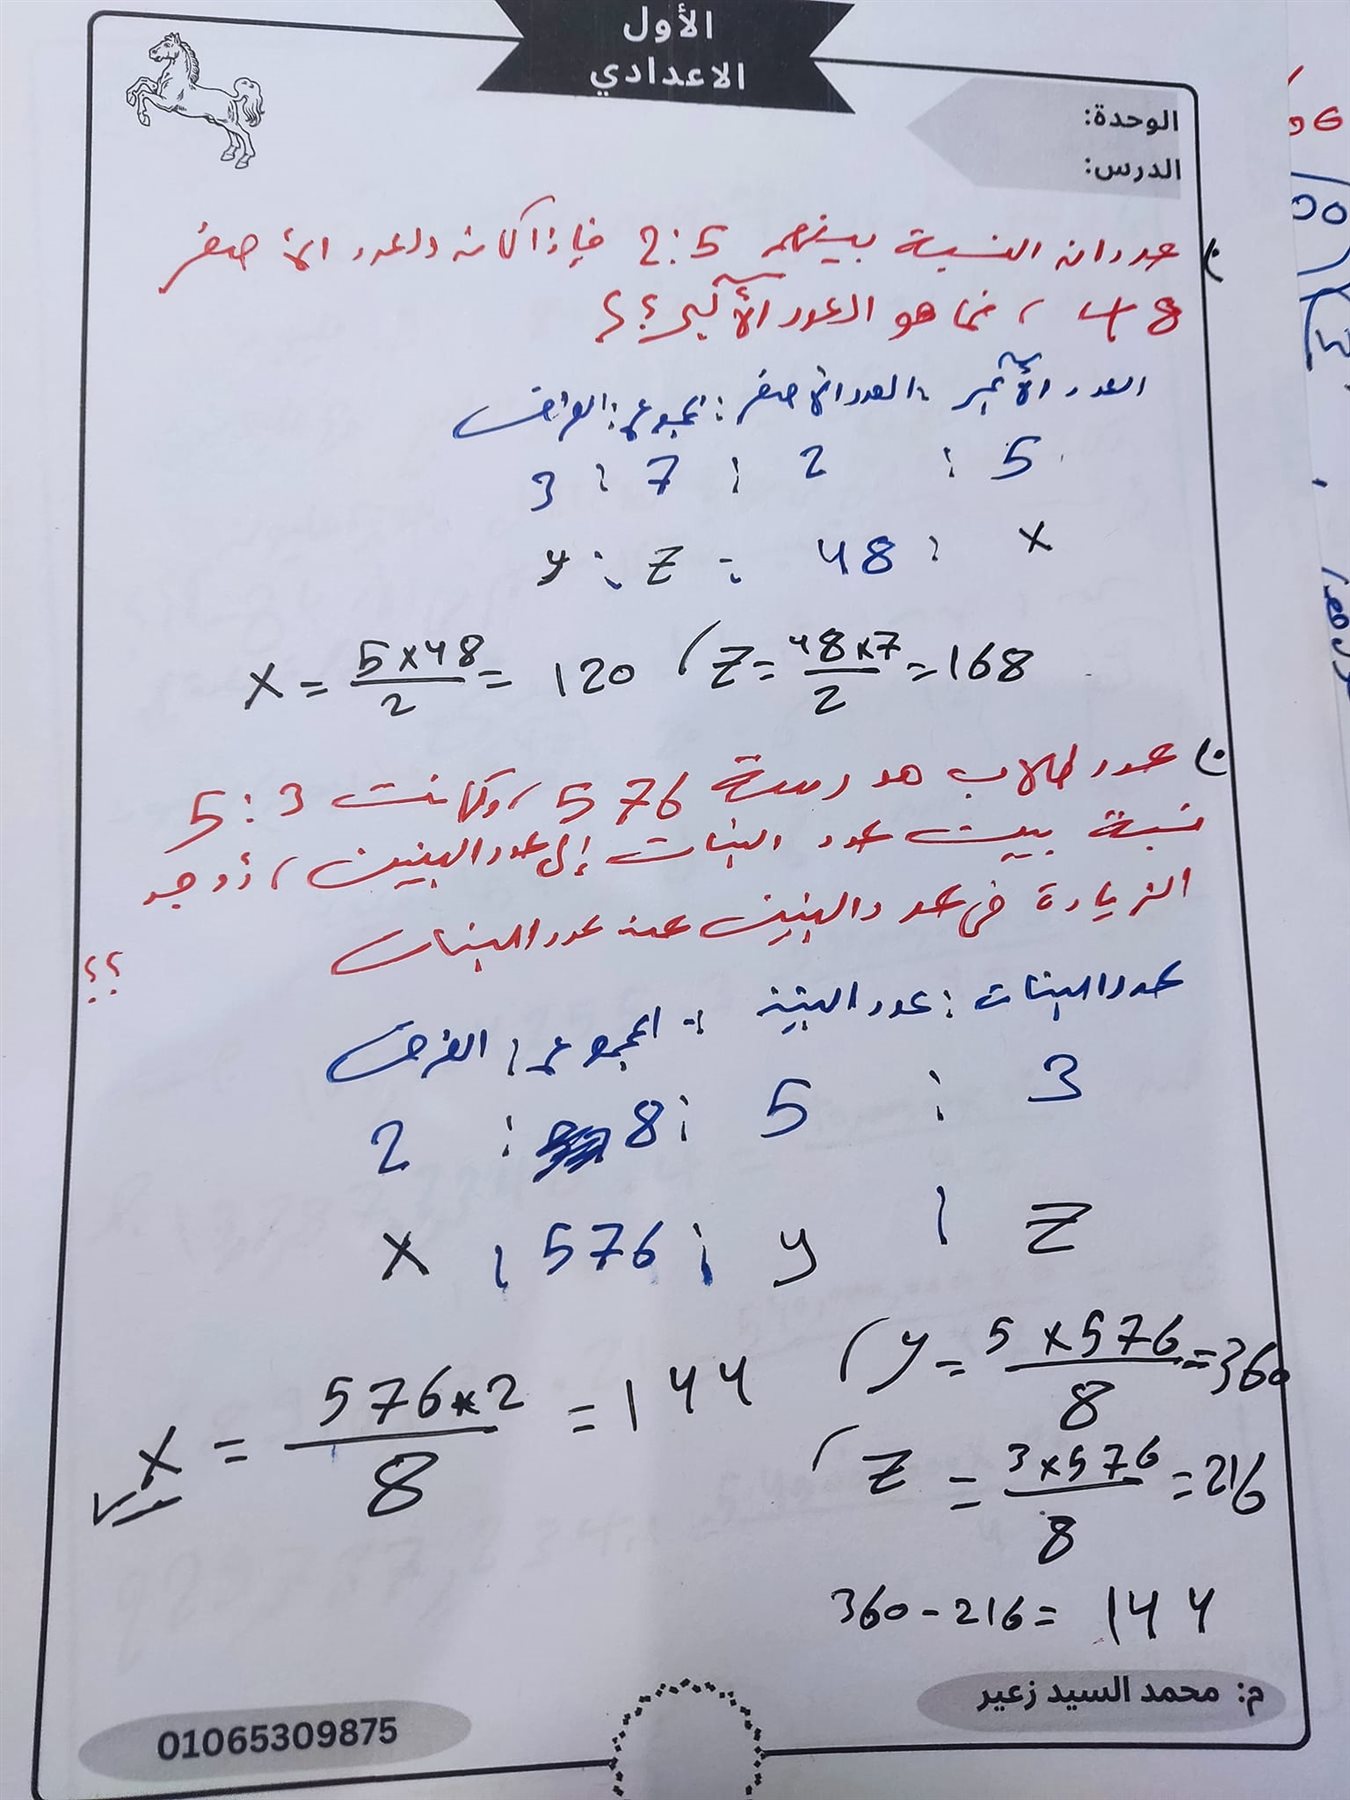 الأول
الاعدادي
الوحدة:
الدرس:
عددان النسبة بينهم 2:5 فإذا كان العدد الأصغر
48 ، فما هو العدد الأكبر؟؟
العدد الأكبر : العدد الأصغر : المجموع : الفرق
5 : 2 : 7 : 3
x : 48 : z : y
x = 5×48/2 = 120 , z = 48×7/2 = 168
عدد طلاب مدرسة 576، وكانت 5:3
نسبة بين عدد البنات إلى عدد البنين ، أوجد
الزيادة في عدد البنين عن عدد البنات
؟؟
عدد البنات : عدد البنين : المجموع : الفرق
3 : 5 : 8 : 2
z : y : 576 : x
, y = 5×576/8 = 360
x = 576×2/8 = 144
, z = 3×576/8 = 216
360 - 216 = 144
م: محمد السيد زعير
01065309875